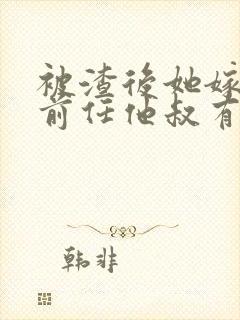 被渣後她嫁
前任他叔有
韩非